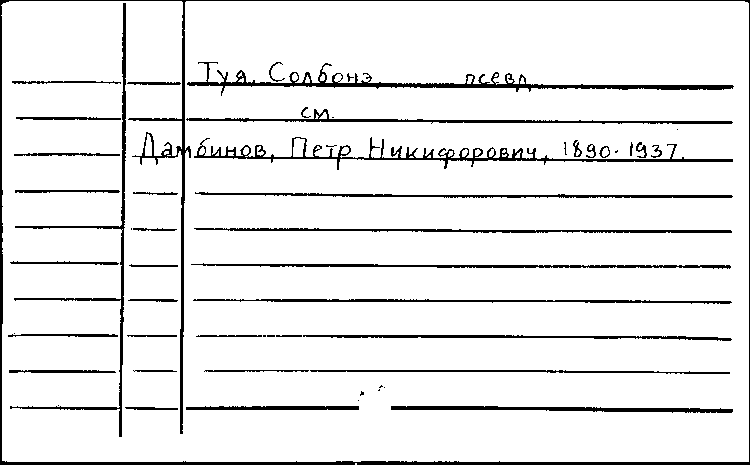 Туя, Солбонэ, псевд.
см.
Дамбинов, Петр Никифорович, 1890-1937.